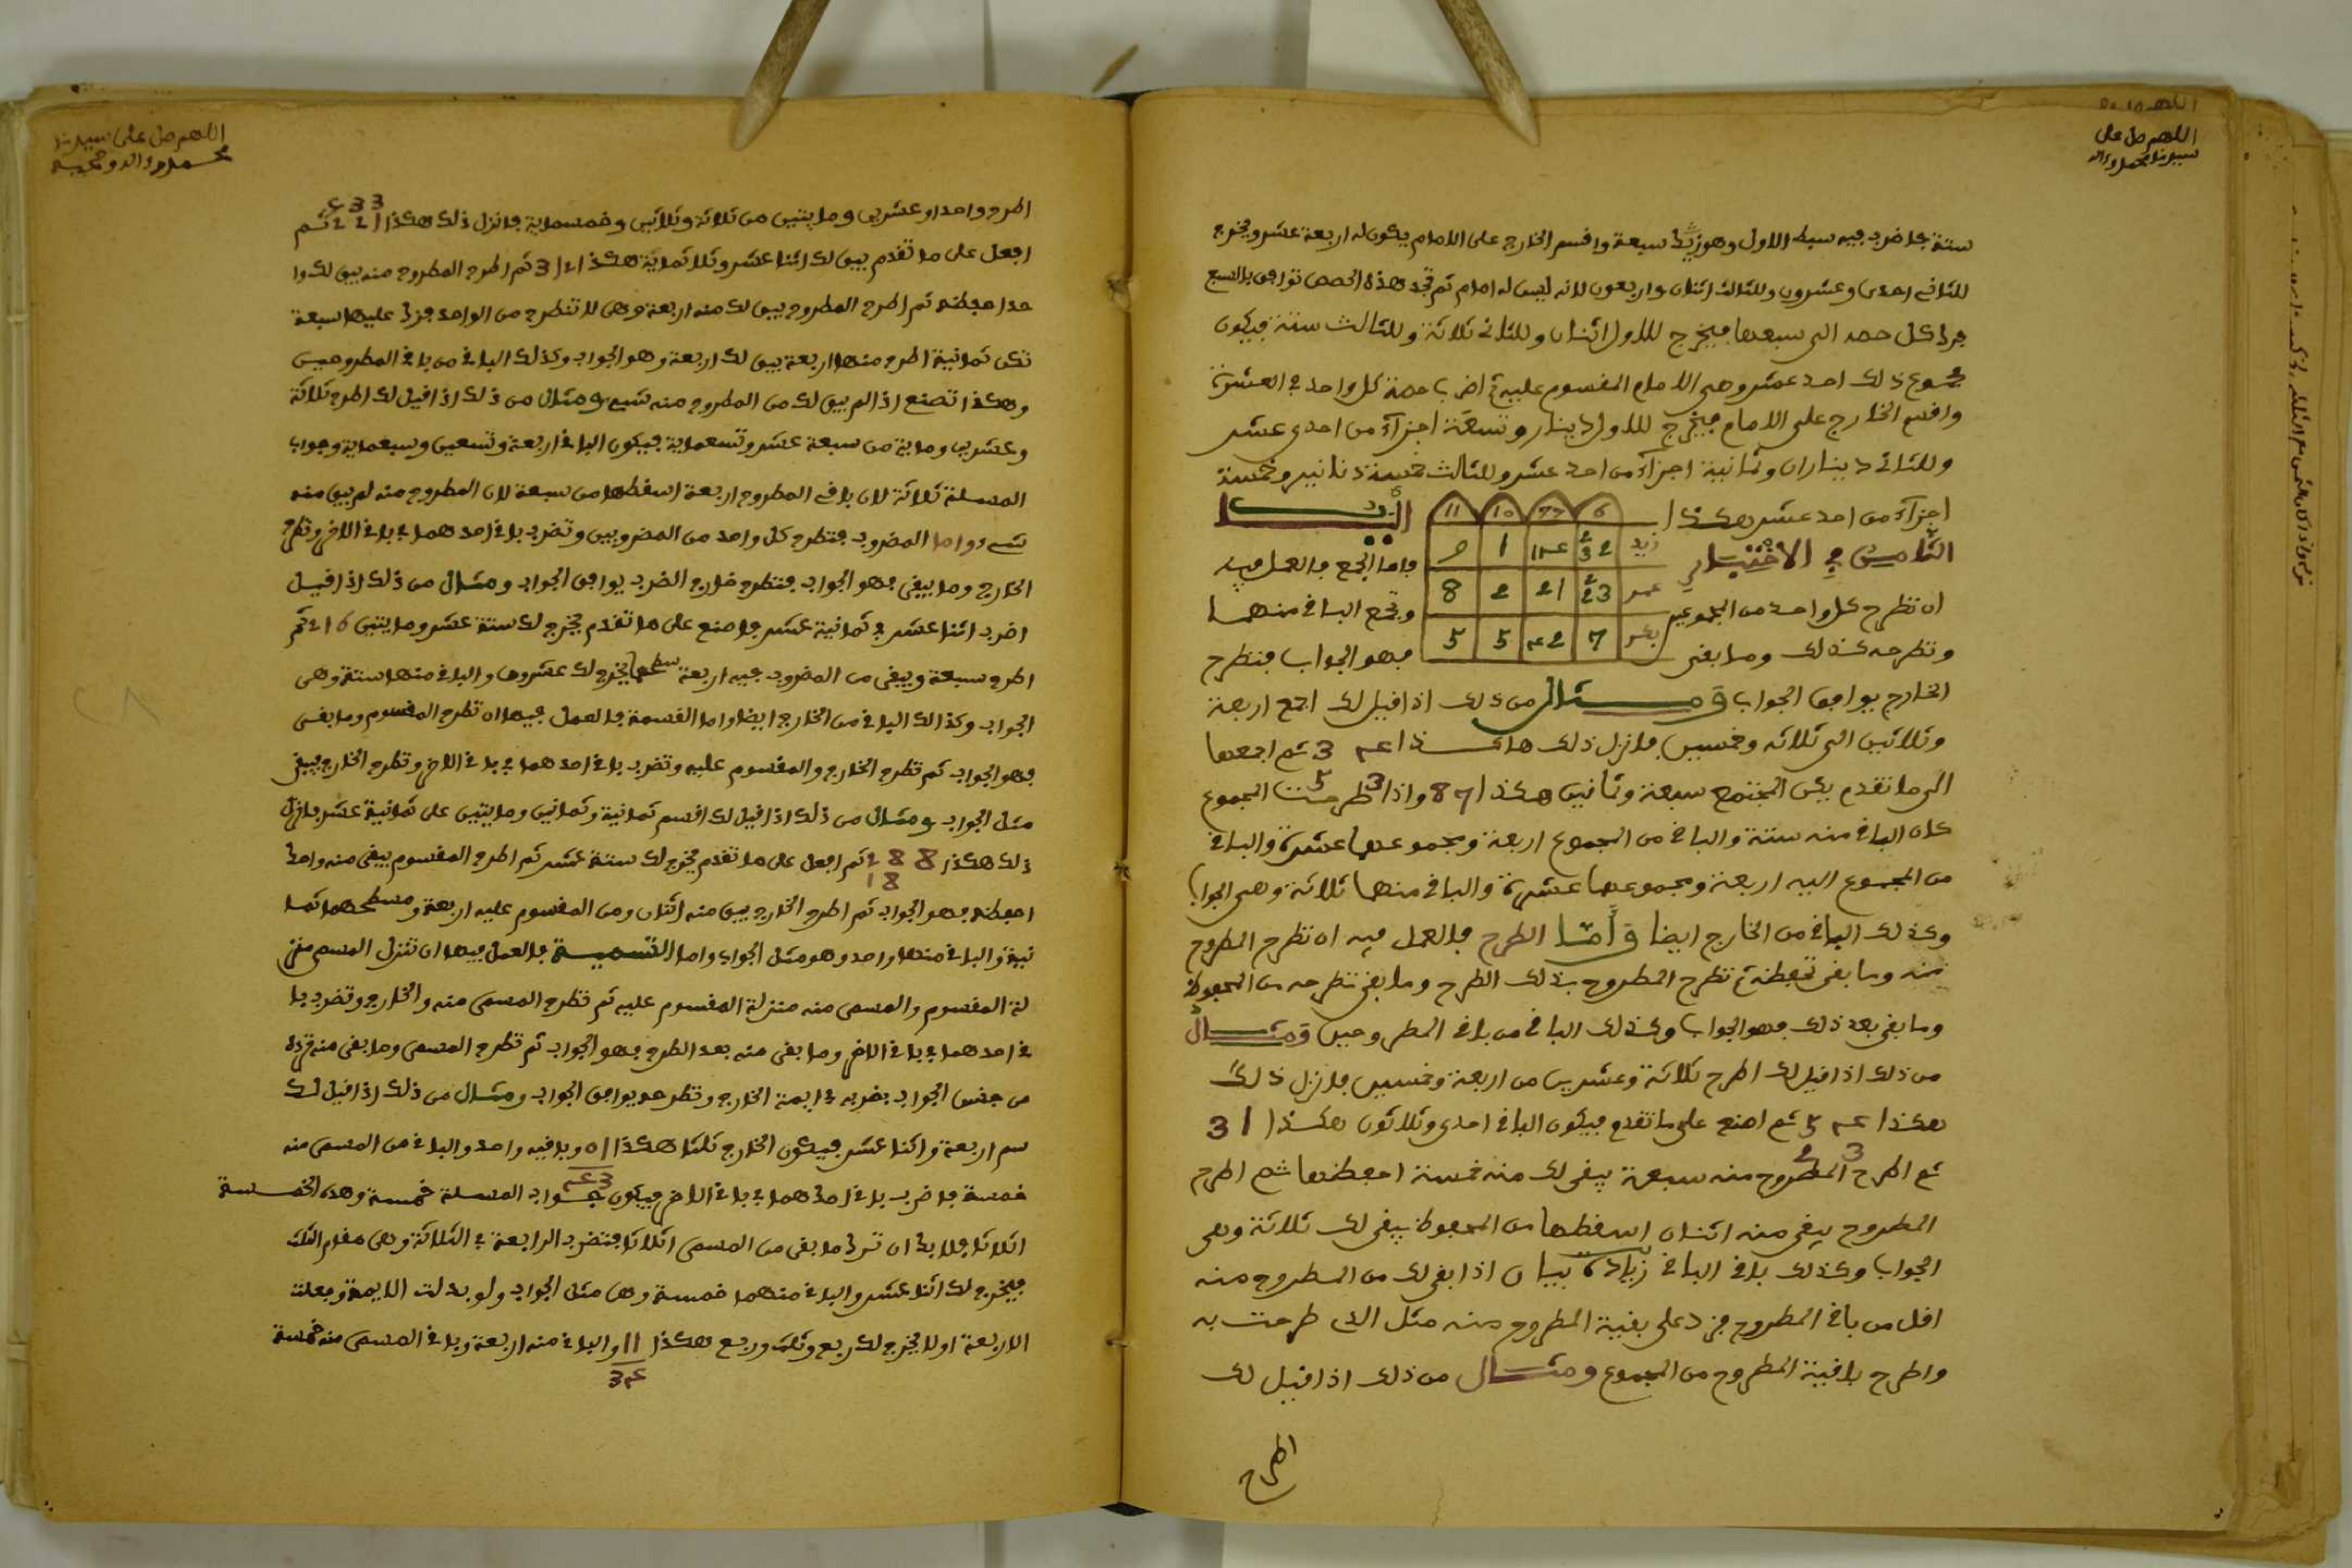 اللهم صل على
سيدنا محمد واله
ستة فاضرب فيه سبط الاول وهو زيد سبعة واقسم الخارج على الامام يكون له اربعة عشر ويخرج
للثاني احدى وعشرون وللثالث اثنان واربعون لانه ليس له امام ثم تجد هذه الحصص توافق بالسبع
فرد كل حصة الى سبعها فيخرج للاول اثنان وللثاني ثلاثة وللثالث ستة فيكون
مجموع ذلك احد عشر وهي الامام المقسوم عليه ثم اضرب حصة كل واحد في العشرة
واقسم الخارج على الامام فيخرج للاول دينار وتسعة اجزاء من احدى عشر
وللثاني ديناران وثمانية اجزاء من احد عشر وللثالث خمسة دنانير وخمسة
اجزاء من احد عشر هكذا
11 10
زيد 1 9
عمر 21 2 8
بكر 7 5 5
الباب
الخامس في الاختبار فاما الجمع فالعمل فيه
ان تطرح كل واحد من المجموعين وتجمع الباقي منهما
وتطرحه كذلك وما بقى فهو الجواب فتطرح
الخارج يوافق الجواب ومثال من ذلك اذا قيل لك اجمع اربعة
وثلاثين الى ثلاثة وخمسين فانزل ذلك هاكذا 4 3 ثم اجمعها
3 5
الى ما تقدم يكن المجتمع سبعة وثمانين هكذا 7 8 واذا طرحت المجموع
كان الباقي منه ستة والباقي من المجموع اربعة ومجموعها عشرة والباقي
من المجموع اليه اربعة ومجموعها عشرة والباقي منهما ثلاثة وهي الجواب
وكذلك الباقي من الخارج ايضا واما الطرح فالعمل فيه ان تطرح المطروح
منه وما بقى تحفظه ثم تطرح المطروح بذلك الطرح وما بقى تطرحه من المحفوظ
وما بقى بعد ذلك فهو الجواب وكذلك الباقي من باقي المطروحين ومثال
من ذلك اذا قيل لك اطرح ثلاثة وعشرين من اربعة وخمسين فانزل ذلك
هكذا 4 5 ثم اصنع على ما تقدم فيكون الباقي احدى وثلاثون هكذا 1 3
3 2
ثم اطرح المطروح منه سبعة يبقى لك منه خمسة احفظها ثم اطرح
المطروح يبقى منه اثنان اسقطها من المحفوظ يبقى لك ثلاثة وهي
الجواب وكذلك باقي الباقي زيادة بيان اذا بقى لك من المطروح منه
اقل من باقي المطروح فزد على بقية المطروح منه مثل الذي طرحت به
واطرح باقية المطروح من المجموع ومثال من ذلك اذا قيل لك
اطرح
اللهم صل على سيدنا
محمد واله وصحبه
اطرح واحدا وعشرين ومايتين من ثلاثة وثلاثين وخمسماية فانزل ذلك هكذا 1 2 2 ثم
افعل على ما تقدم يبق لك اثنا عشر وثلاثماية هكذا 2 1 3 ثم اطرح المطروح منه يبق لك وا
حدا احفظه ثم اطرح المطروح يبق لك منه اربعة وهي لا تنطرح من الواحد فزد عليها سبعة
تكن ثمانية اطرح منها اربعة يبق لك اربعة وهو الجواب وكذلك الباقي من باقي المطروحين
وهكذا تصنع اذا لم يبق لك من المطروح منه شيء ومثال من ذلك اذا قيل لك اطرح ثلاثة
وعشرين وماية من سبعة عشر وتسعماية فيكون الباقي اربعة وتسعين وسبعماية وجواب
المسلة ثلاثة لان باقي المطروح اربعة اسقطها من سبعة لان المطروح منه لم يبق منه
شيء واما المضروب فتطرح كل واحد من المضروبين وتضرب باقي احدهما في باقي الاخر وتطرح
الخارج وما يبقى فهو الجواب فتطرح خارج الضرب يوافق الجواب ومثال من ذلك اذا قيل
اضرب اثنا عشر في ثمانية عشر فاصنع على ما تقدم يخرج لك ستة عشر ومايتين 6 1 2 ثم
اطرح سبعة ويبقى من المضروب فيه اربعة سطحها يخرج لك عشرون والباقي منها ستة وهي
الجواب وكذالك الباقي من الخارج ايضا واما القسمة فالعمل فيها ان تطرح المقسوم وما بقى
فهو الجواب ثم تطرح الخارج والمقسوم عليه وتضرب باقي احدهما في باقي الاخر وتطرح الخارج يبقى
مثل الجواب ومثال من ذلك اذا قيل لك اقسم ثمانية وثمانين ومايتين على ثمانية عشر فانزل
ذلك هكذا 8 8 2 ثم افعل على ما تقدم يخرج لك ستة عشر ثم اطرح المقسوم يبقى منه واحد
8 1
احفظه فهو الجواب ثم اطرح الخارج يبق منه اثنان ومن المقسوم عليه اربعة ومسطحهما ثما
نية والباقي منها واحد وهو مثل الجواب واما التسمية فالعمل فيها ان تنزل المسمى منز
لة المقسوم والمسمى منه منزلة المقسوم عليه ثم تطرح المسمى منه والخارج وتضرب با
قي احدهما في باقي الاخر وما بقى منه بعد الطرح فهو الجواب ثم تطرح المسمى وما بقى منه ترده
من جنس الجواب بضربه في ايمة الخارج وتطرحه يوافق الجواب ومثال من ذلك اذا قيل لك
سم اربعة واثنا عشر فيكون الخارج ثلثا هكذا وباقيه واحد والباقي من المسمى منه
خمسة فاضرب باقي احدهما في باقي الاخر فيكون جواب المسلة خمسة وهذه الخمسة
اثلاثا فلا بد ان ترد ما بقى من المسمى اثلاثا فتضرب الرابعة في الثلاثة وهي مقام الثلث
فيخرج لك اثنا عشر والباقي منهما خمسة وهي مثل الجواب ولو بدلت الايمة وجعلت
الاربعة اولا يخرج لك ربع وثلث وربع هكذا 1 1 والباقي منه اربعة وباقي المسمى منه خمسة
4 3